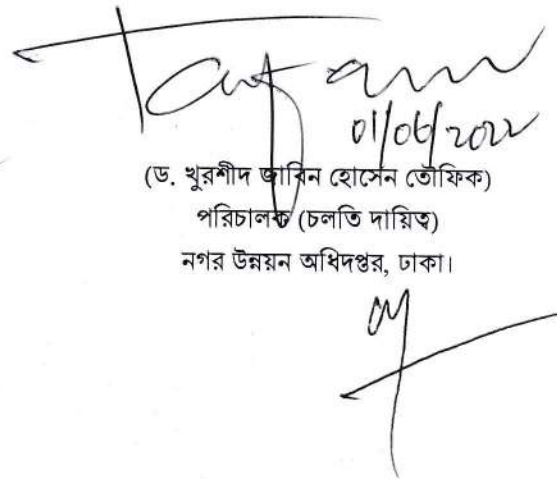 01/06/2022
(ড. খুরশীদ জাবিন হোসেন তৌফিক)
পরিচালক (চলতি দায়িত্ব)
নগর উন্নয়ন অধিদপ্তর, ঢাকা।